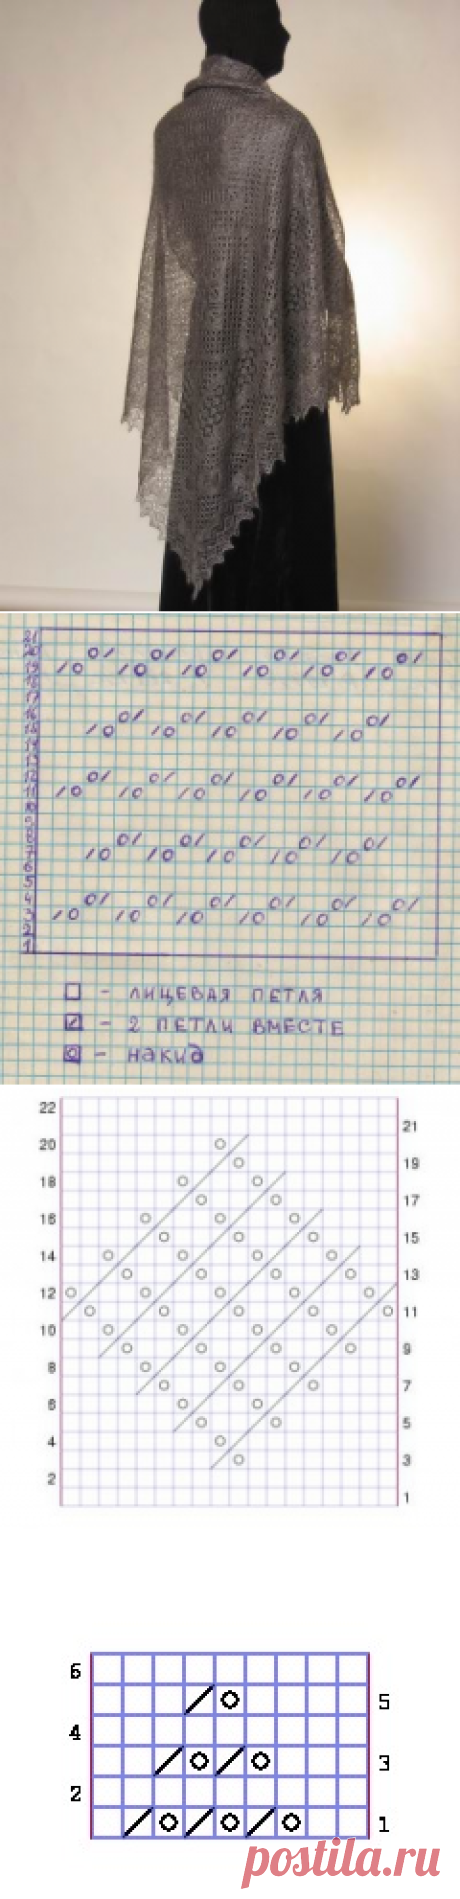 □ - ЛИЦЕВАЯ ПЕТЛЯ
- 2 ПЕТЛИ ВМЕСТЕ
- НАКИД
22
21
20
19
18
17
16
15
14
13
12
11
10
9
8
7
6
5
4
3
2
1
6
5
4
3
2
1
postila.ru